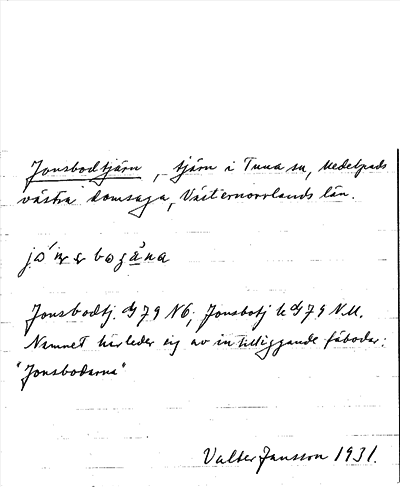 Jonsbodtjärn, tjärn i Tuna sn, Medelpads
västra domsaga, Västernorrlands län.
Jonsbodtj. 79 NÖ; Jonsbotj 79 NU.
Namnet härleder sig av intilliggande fäbodar:
"Jonsbodarna"
Valter Jansson 1931.